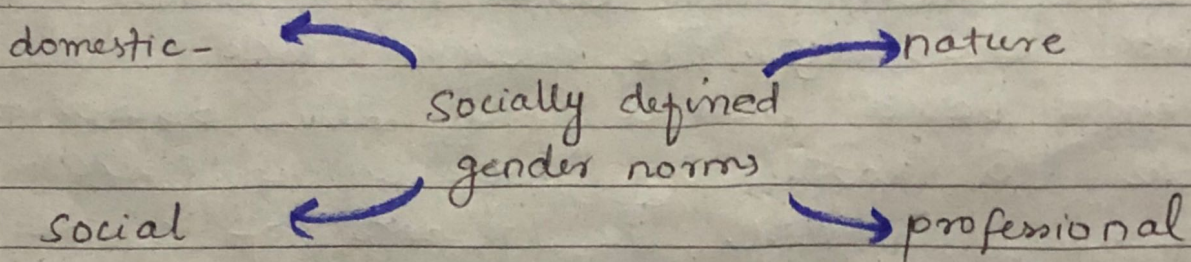 domestic-
nature
Socially defined
gender norms
social
professional